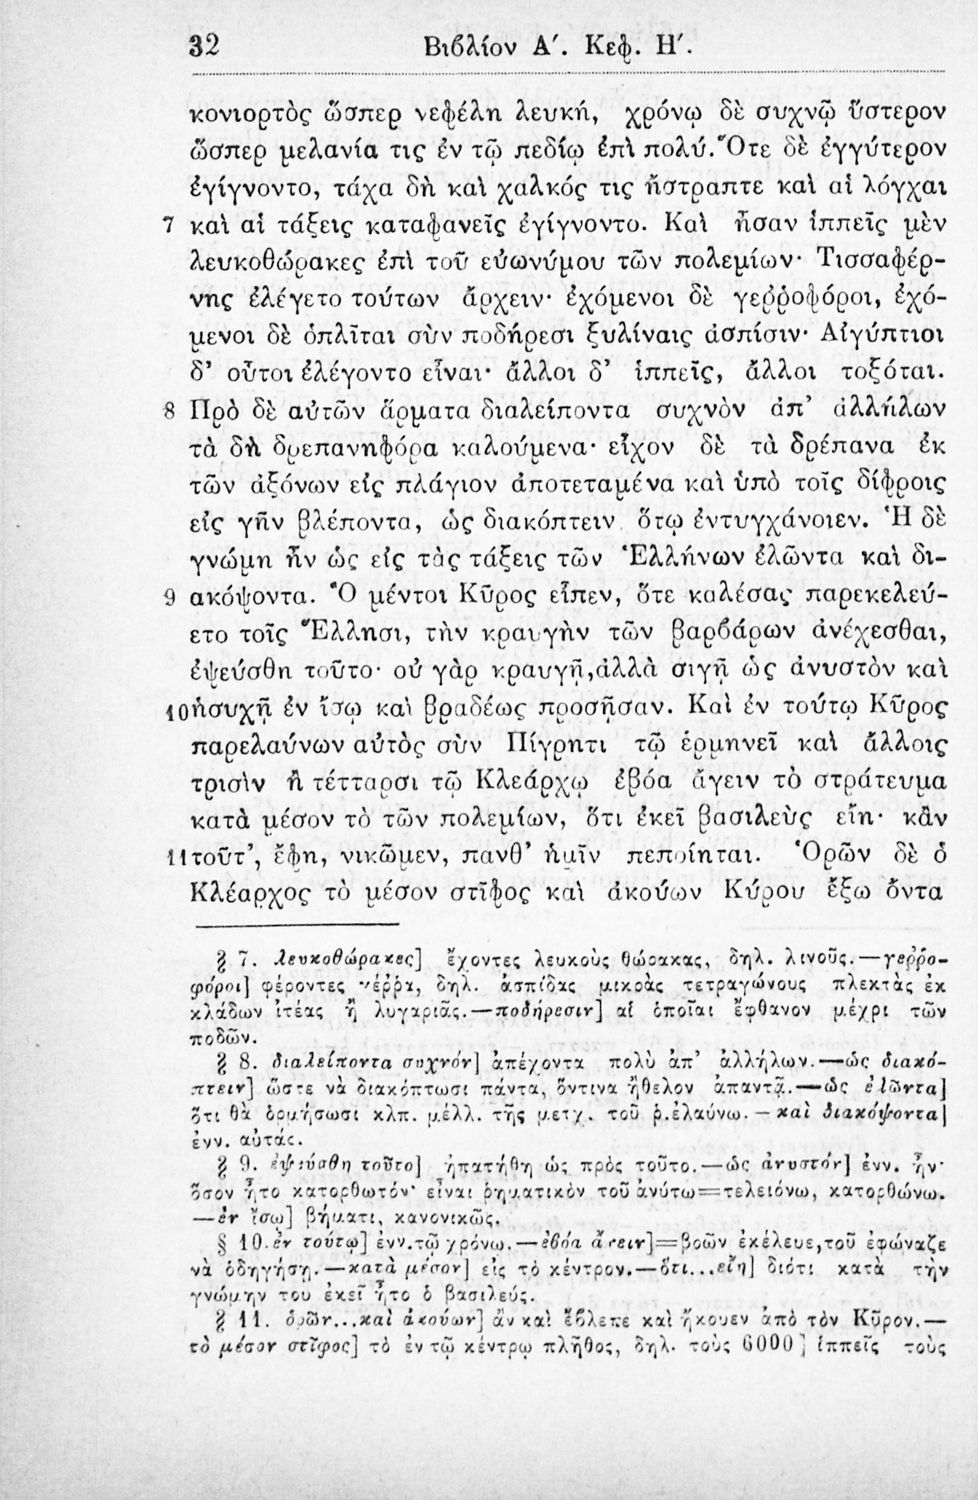 32 Βιβλίον Α΄. Κεφ. Η΄.
κονιορτὸς ὥσπερ νεφέλη λευκή, χρόνῳ δὲ συχνῷ ὕστερον
ὥσπερ μελανία τις ἐν τῷ πεδίῳ ἐπὶ πολύ. Ὅτε δὲ ἐγγύτερον
ἐγίγνοντο, τάχα δὴ καὶ χαλκός τις ἤστραπτε καὶ αἱ λόγχαι
7 καὶ αἱ τάξεις καταφανεῖς ἐγίγνοντο. Καὶ ἦσαν ἱππεῖς μὲν
λευκοθώρακες ἐπὶ τοῦ εὐωνύμου τῶν πολεμίων· Τισσαφέρ-
νης ἐλέγετο τούτων ἄρχειν· ἐχόμενοι δὲ γεῤῥοφόροι, ἐχό-
μενοι δὲ ὁπλῖται σὺν ποδήρεσι ξυλίναις ἀσπίσιν· Αἰγύπτιοι
δ’ οὗτοι ἐλέγοντο εἶναι· ἄλλοι δ’ ἱππεῖς, ἄλλοι τοξόται.
8 Πρὸ δὲ αὐτῶν ἅρματα διαλείποντα συχνὸν ἀπ’ ἀλλήλων
τὰ δὴ δρεπανηφόρα καλούμενα· εἶχον δὲ τὰ δρέπανα ἐκ
τῶν ἀξόνων εἰς πλάγιον ἀποτεταμένα καὶ ὑπὸ τοῖς δίφροις
εἰς γῆν βλέποντα, ὡς διακόπτειν ὅτῳ ἐντυγχάνοιεν. Ἡ δὲ
γνώμη ἦν ὡς εἰς τὰς τάξεις τῶν Ἑλλήνων ἐλῶντα καὶ δι-
9 ακόψοντα. Ὃ μέντοι Κῦρος εἶπεν, ὅτε καλέσας παρεκελεύ-
ετο τοῖς Ἕλλησι, τὴν κραυγὴν τῶν βαρβάρων ἀνέχεσθαι,
ἐψεύσθη τοῦτο· οὐ γὰρ κραυγῇ, ἀλλὰ σιγῇ ὡς ἀνυστὸν καὶ
10 ἡσυχῇ ἐν ἴσῳ καὶ βραδέως προσῇσαν. Καὶ ἐν τούτῳ Κῦρος
παρελαύνων αὐτὸς σὺν Πίγρητι τῷ ἑρμηνεῖ καὶ ἄλλοις
τρισὶν ἢ τέτταρσι τῷ Κλεάρχῳ ἐβόα ἄγειν τὸ στράτευμα
κατὰ μέσον τὸ τῶν πολεμίων, ὅτι ἐκεῖ βασιλεὺς εἴη· κἂν
11 τοῦτ’, ἔφη, νικῶμεν, πανθ’ ἡμῖν πεποίηται. Ὁρῶν δὲ ὁ
Κλέαρχος τὸ μέσον στῖφος καὶ ἀκούων Κύρου ἔξω ὄντα
§ 7. λευκοθώρακες] ἔχοντες λευκοὺς θώρακας, δηλ. λινοῦς.—γεῤῥο-
φόροι] φέροντες γέῤῥα, δηλ. ἀσπίδας μικρὰς τετραγώνους πλεκτὰς ἐκ
κλάδων ἰτέας ἢ λυγαριᾶς.—ποδήρεσιν] αἱ ὁποῖαι ἔφθανον μέχρι τῶν
ποδῶν.
§ 8. διαλείποντα συχνόν] ἀπέχοντα πολὺ ἀπ’ ἀλλήλων.—ὡς διακό-
πτειν] ὥστε νὰ διακόπτωσι πάντα, ὅντινα ἤθελον ἀπαντᾷ.—ὡς ἐλῶντα]
ὅτι θὰ ὁρμήσωσι κλπ. μέλλ. τῆς μετχ. τοῦ ῥ. ἐλαύνω.—καὶ διακόψοντα]
ἐνν. αὐτάς.
§ 9. ἐψεύσθη τοῦτο] ἠπατήθη ὡς πρὸς τοῦτο.—ὡς ἀνυστόν] ἐνν. ἦν·
ὅσον ἦτο κατορθωτόν· εἶναι ῥηματικὸν τοῦ ἀνύτω=τελειόνω, κατορθώνω.
—ἐν ἴσῳ] βήματι, κανονικῶς.
§ 10. ἐν τούτῳ] ἐνν. τῷ χρόνῳ.—ἐβόα ἄγειν]=βοῶν ἐκέλευε, τοῦ ἐφώναζε
νὰ ὁδηγήσῃ.—κατὰ μέσον] εἰς τὸ κέντρον.—ὅτι...εἴη] διότι κατὰ τὴν
γνώμην του ἐκεῖ ἦτο ὁ βασιλεύς.
§ 11. ὁρῶν...καὶ ἀκούων] ἂν καὶ ἔβλεπε καὶ ἤκουεν ἀπὸ τὸν Κῦρον.—
τὸ μέσον στῖφος] τὸ ἐν τῷ κέντρῳ πλῆθος, δηλ. τοὺς 6000] ἱππεῖς τοὺς